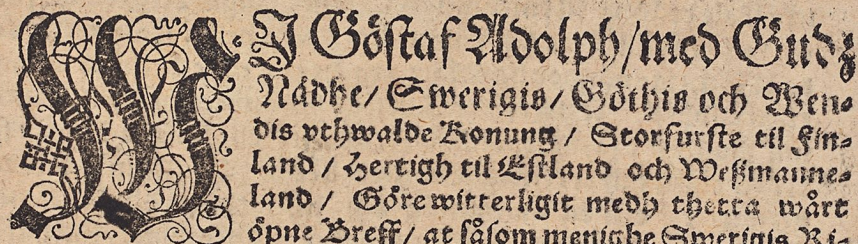 WJ Göstaf Adolph/med Gudz
Nådhe/ Swerigis/ Göthis och Wen⸗
dis vthwalde Konung / Storfurste til Fin⸗
land / Hertigh til Estland och Weßmanne⸗
land / Göre witterligit medh thetta wårt
öpne Breff/ at såsom menighe Swerigis Ri⸗